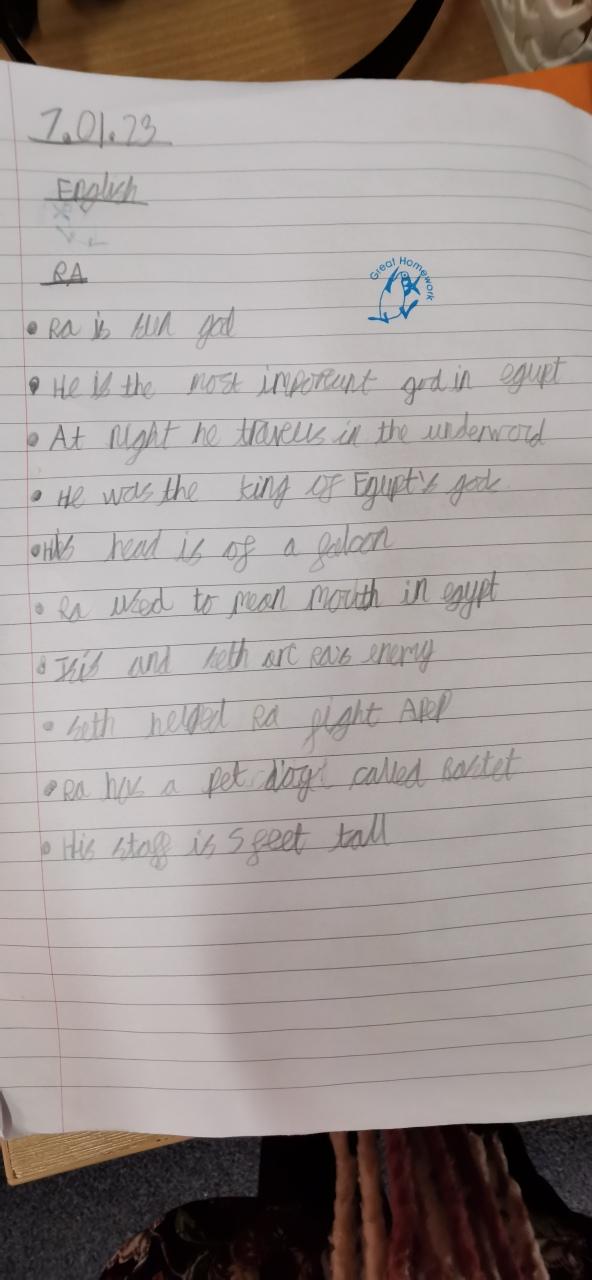 7.01.23
English
RA
Great Homework
• Ra is sun god
• He is the most importunt god in egupt
• At night he travells in the underword
• He was the king of Egupt's gods
• His head is of a falcon
• Ra used to mean mouth in egypt
• Isis and seth are Ra's enemy
• Seth helped Ra fight APEP
• Ra has a pet dog called Bastet
• His staff is 5 feet tall